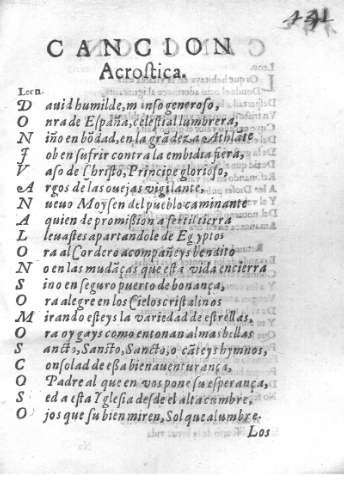 CANCION
Acrostica.
Leon.
D auid humilde, manso generoso,
O nra de España, celestial lumbrera,
N iño en bõdad, en la grãdeza Athlate
I ob en sufrir contra la embidia fiera,
V aso de Christo, Principe glorioso,
A rgos de las ouejas vigilante,
N ueuo Moysen del pueblo caminante
A quien de promission a fertil tierra
L leuastes apartandole de Egyptos
O ra al Cordero acompañeys bendito
N o en las mudãças que esta vida encierra
S ino en seguro puerto de bonança,
O ra alegre en los Cielos cristalinos
M irando esteys la variedad de estrellas,
O ra oygays como entonan almas bellas
S ancto, Sancto, Sancto, o cãteys hymnos,
C onsolad de essa bienauenturança,
O Padre al que en vos pone su esperança,
S ed a esta Yglesia desde el alta cumbre,
O jos que su bien miren, Sol que alumbre.
Los